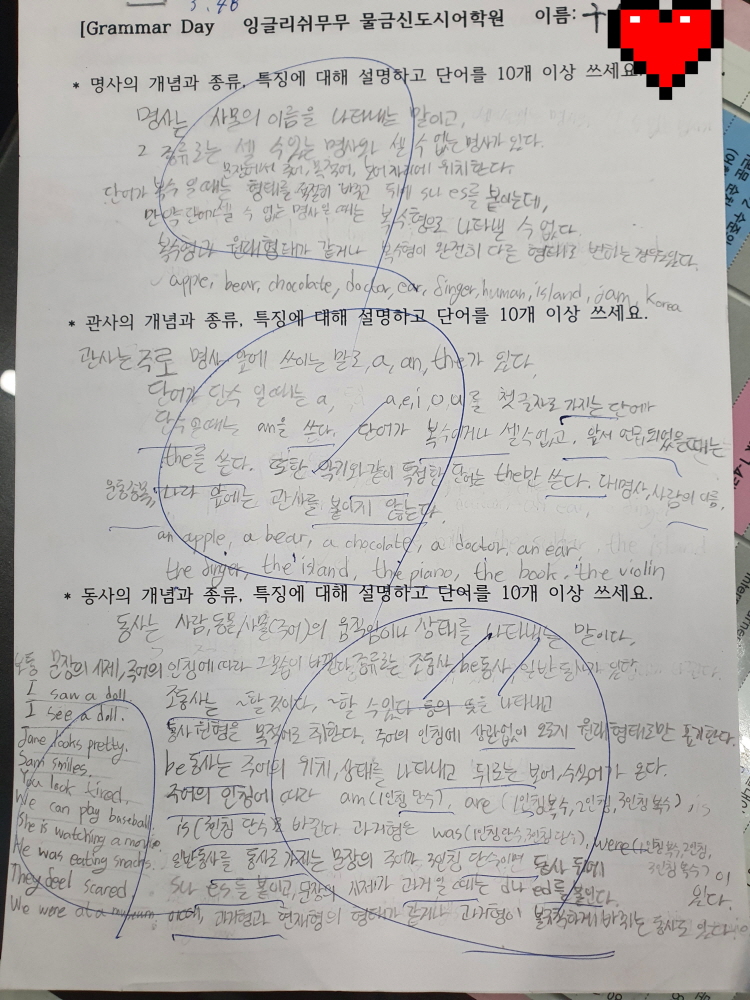 3.48
[Grammar Day 잉글리쉬무무 물금신도시어학원 이름:
* 명사의 개념과 종류, 특징에 대해 설명하고 단어를 10개 이상 쓰세요.
명사는 사물의 이름을 나타내는 말이고,
2 종류로는 셀 수 있는 명사와 셀 수 없는 명사가 있다.
문장에서 주어, 목적어, 보어 자리에 위치한다.
단어가 복수 일때는 형태를 적절히 바꾸고 뒤에 s나 es를 붙이는데,
만약 단어가 셀 수 없는 명사일 때는 복수형으로 나타낼 수 없다.
복수형과 원래형태가 같거나 복수형이 완전히 다른 형태로 변하는 경우도 있다.
apple, bear, chocolate, doctor, ear, finger, human, island, jam, Korea
* 관사의 개념과 종류, 특징에 대해 설명하고 단어를 10개 이상 쓰세요.
관사는 주로 명사 앞에 쓰이는 말로, a, an, the가 있다.
단어가 단수 일때는 a, a, e, i, o, u를 첫글자로 가지는 단어가
단수일때는 an을 쓴다. 단어가 복수이거나 셀수없고, 앞서 언급 되었을때는
the를 쓴다. 또한 악기와 같이 특정한 단어는 the만 쓴다. 대명사, 사람의 이름,
운동종목, 나라 앞에는 관사를 붙이지 않는다.
an apple, a bear, a chocolate, a doctor, an ear,
the finger, the island, the piano, the book, the violin
* 동사의 개념과 종류, 특징에 대해 설명하고 단어를 10개 이상 쓰세요.
동사는 사람, 동물, 사물(주어)의 움직임이나 상태를 나타내는 말이다.
보통 문장의 시제, 주어의 인칭에 따라 그 모습이 바뀐다. 종류는 조동사, be동사, 일반동사가 있다.
I saw a doll.
I see a doll.
Jane looks pretty.
Sam smiles.
You look tired.
We can play baseball.
She is watching a movie.
He was eating snacks.
They feel scared
We were at a museum
조동사는 ~할 것이다, ~할 수있다 등의 뜻을 나타내고
동사원형을 목적어로 취한다. 주어의 인칭에 상관없이 오로지 원래형태로만 표기한다.
be동사는 주어의 위치, 상태를 나타내고 뒤로는 보어, 수식어가 온다.
주어의 인칭에 따라 am(1인칭 단수), are (1인칭복수, 2인칭, 3인칭 복수), is
is(3인칭 단수)로 바뀐다 과거형은 was(1인칭단수, 3인칭단수), were(1인칭복수, 2인칭,
3인칭 복수)이
있다.
일반동사를 동사로 가지는 문장의 주어가 3인칭 단수이면 동사 뒤에
s나 es를 붙이고, 문장의 시제가 과거일 때에는 d나 ed를 붙인다.
과거형과 현재형의 형태가 같거나 과거형이 불규칙하게 바뀌는 동사도 있다.